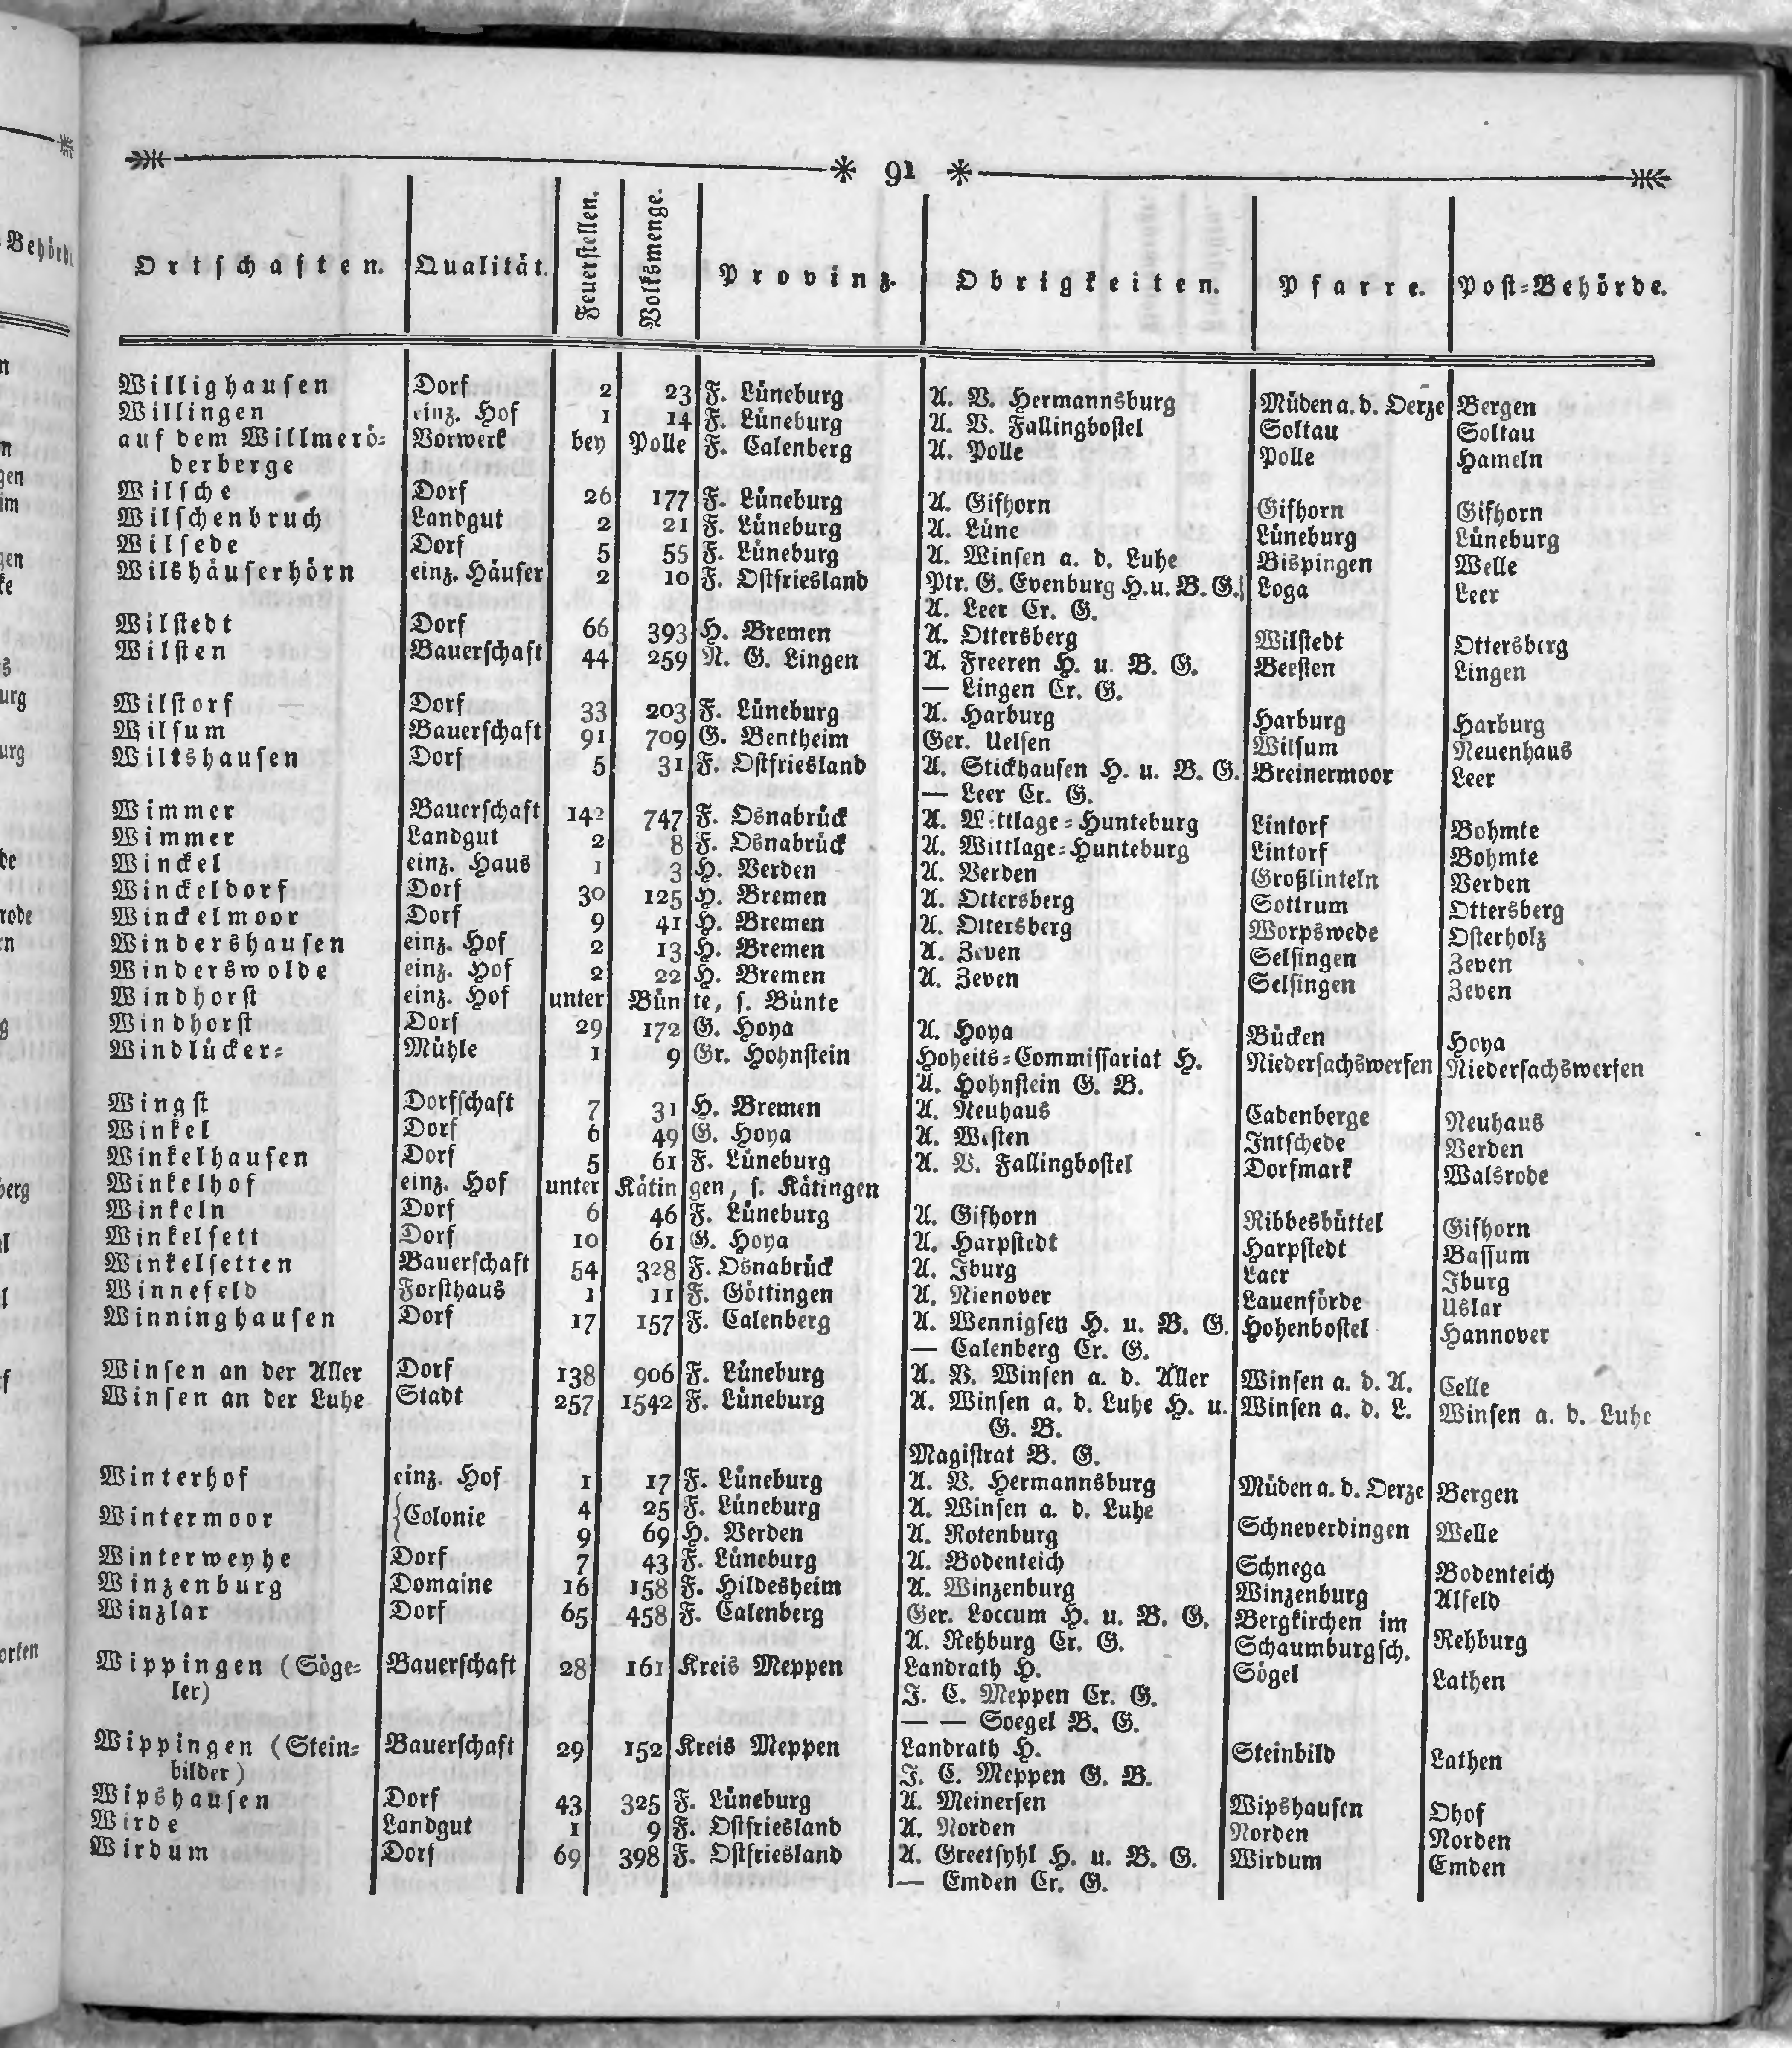 91
Ortschaften. Qualität. Feuerstellen. Volksmenge. Provinz. Obrigkeiten. Pfarre. Post-Behörde.
Willighausen Dorf 2 23 F. Lüneburg A. V. Hermannsburg Müden a. d. Oerze Bergen
Willingen einz. Hof 1 14 F. Lüneburg A. V. Fallingbostel Soltau Soltau
auf dem Willmerö- Vorwerk bey Polle F. Calenberg A. Polle Polle Hameln
derberge
Wilsche Dorf 26 177 F. Lüneburg A. Gifhorn Gifhorn Gifhorn
Wilschenbruch Landgut 2 21 F. Lüneburg A. Lüne Lüneburg Lüneburg
Wilsede Dorf 5 55 F. Lüneburg A. Winsen a. d. Luhe Bispingen Welle
Wilshäuserhörn einz. Häuser 2 10 F. Ostfriesland Ptr. G. Evenburg H. u. B. G. Loga Leer
A. Leer Cr. G.
Wilstedt Dorf 66 393 H. Bremen A. Ottersberg Wilstedt Ottersberg
Wilsten Bauerschaft 44 259 N. G. Lingen A. Freeren H. u. B. G. Beesten Lingen
— Lingen Cr. G.
Wilstorf Dorf 33 203 F. Lüneburg A. Harburg Harburg Harburg
Wilsum Bauerschaft 91 709 G. Bentheim Ger. Uelsen Wilsum Neuenhaus
Wiltshausen Dorf 5 31 F. Ostfriesland A. Stickhausen H. u. B. G. Breinermoor Leer
— Leer Cr. G.
Wimmer Bauerschaft 142 747 F. Osnabrück A. Wittlage-Hunteburg Lintorf Bohmte
Wimmer Landgut 2 8 F. Osnabrück A. Wittlage-Hunteburg Lintorf Bohmte
Winckel einz. Haus 1 3 H. Verden A. Verden Großlinteln Verden
Winckeldorf Dorf 30 125 H. Bremen A. Ottersberg Sottrum Ottersberg
Winckelmoor Dorf 9 41 H. Bremen A. Ottersberg Worpswede Osterholz
Windershausen einz. Hof 2 13 H. Bremen A. Zeven Selsingen Zeven
Winderswolde einz. Hof 2 22 H. Bremen A. Zeven Selsingen Zeven
Windhorst einz. Hof unter Bünte, s. Bünte
Windhorst Dorf 29 172 G. Hoya A. Hoya Bücken Hoya
Windlücker- Mühle 1 9 Gr. Hohnstein Hoheits-Commissariat H. Niedersachswerfen Niedersachswerfen
A. Hohnstein G. B.
Wingst Dorfschaft 7 31 H. Bremen A. Neuhaus Cadenberge Neuhaus
Winkel Dorf 6 49 G. Hoya A. Westen Intschede Verden
Winkelhausen Dorf 5 61 F. Lüneburg A. V. Fallingbostel Dorfmark Walsrode
Winkelhof einz. Hof unter Kätingen, s. Kätingen
Winkeln Dorf 6 46 F. Lüneburg A. Gifhorn Ribbesbüttel Gifhorn
Winkelsett Dorf 10 61 G. Hoya A. Harpstedt Harpstedt Bassum
Winkelsetten Bauerschaft 54 328 F. Osnabrück A. Iburg Laer Iburg
Winnefeld Forsthaus 1 11 F. Göttingen A. Nienover Lauenförde Uslar
Winninghausen Dorf 17 157 F. Calenberg A. Wennigsen H. u. B. G. Hohenbostel Hannover
— Calenberg Cr. G.
Winsen an der Aller Dorf 138 906 F. Lüneburg A. V. Winsen a. d. Aller Winsen a. d. A. Celle
Winsen an der Luhe Stadt 257 1542 F. Lüneburg A. Winsen a. d. Luhe H. u. Winsen a. d. L. Winsen a. d. Luhe
G. B.
Magistrat B. G.
Winterhof einz. Hof 1 17 F. Lüneburg A. V. Hermannsburg Müden a. d. Oerze Bergen
4 25 F. Lüneburg A. Winsen a. d. Luhe
Wintermoor Colonie Schneverdingen Welle
9 69 H. Verden A. Rotenburg
Winterweyhe Dorf 7 43 F. Lüneburg A. Bodenteich Schnega Bodenteich
Winzenburg Domaine 16 158 F. Hildesheim A. Winzenburg Winzenburg Alfeld
Winzlar Dorf 65 458 F. Calenberg Ger. Loccum H. u. B. G. Bergkirchen im
A. Rehburg Cr. G. Schaumburgsch. Rehburg
Wippingen (Söge- Bauerschaft 28 161 Kreis Meppen Landrath H. Sögel Lathen
ler) J. C. Meppen Cr. G.
— — Soegel B. G.
Wippingen (Stein- Bauerschaft 29 152 Kreis Meppen Landrath H. Steinbild Lathen
bilder) J. C. Meppen G. B.
Wipshausen Dorf 43 325 F. Lüneburg A. Meinersen Wipshausen Ohof
Wirde Landgut 1 9 F. Ostfriesland A. Norden Norden Norden
Wirdum Dorf 69 398 F. Ostfriesland A. Greetsyhl H. u. B. G. Wirdum Emden
— Emden Cr. G.